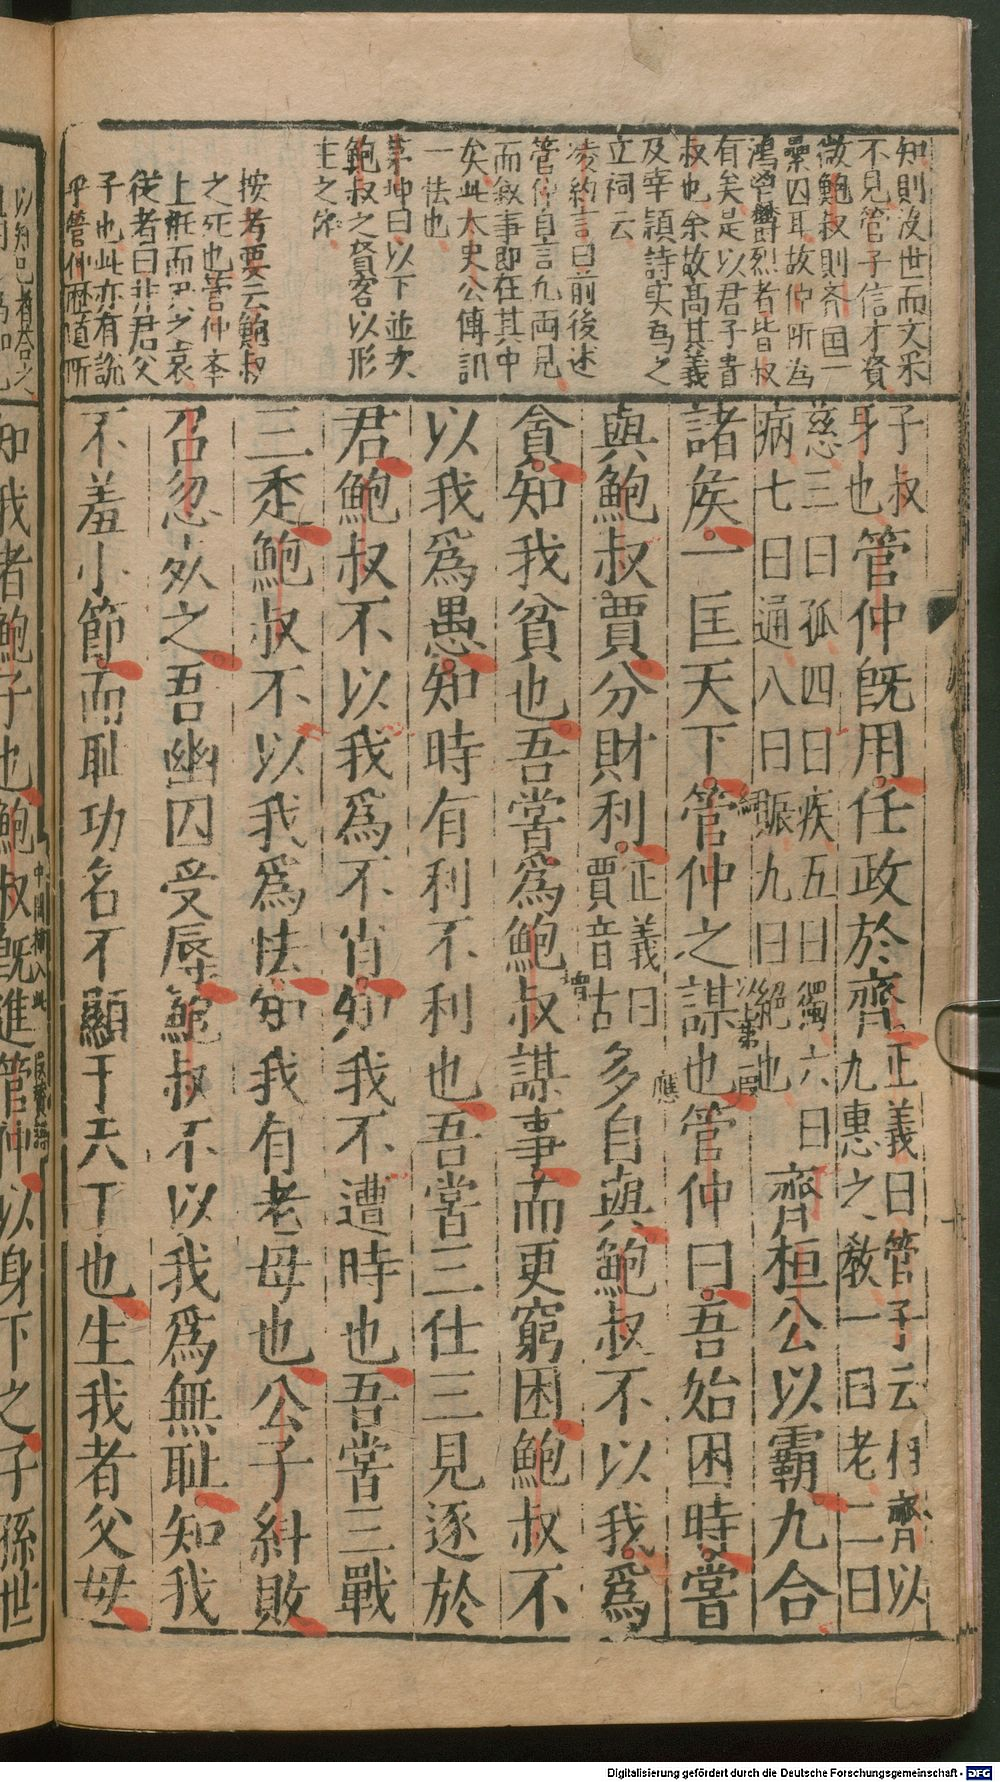 知則沒世而文采
不見管子信才資
微鮑叔則齊国一
纍囚耳故仲所為
有矣是以君子貴
叔也余故髙其義
及幸頴詩実為之
立祠云
凌約言曰前後述
管仲自言九両見
而敘事即在其中
矣此太史公傳訊
一怯也
茅坤曰以下並次
鮑叔之賢客以形
主之
按考要云鮑叔
之死也管仲奉
上衽而哭之哀
従者曰非君父
子也此亦有說
乎管仲歴道所
子叔身也管仲既用任政於齊正義曰管子云相齊以九惠之教一曰老二曰
慈三曰孤四曰疾五曰獨六曰病七曰通八曰賑九曰絕也齊桓公以霸九合
諸矦一匡天下管仲之謀也管仲曰吾始困時嘗
以上第一段
應
與鮑叔賈分財利正義曰賈音古多自與鮑叔不以我爲
貪知我貧也吾嘗爲鮑叔謀事而更窮困鮑叔不
以我爲愚知時有利不利也吾嘗三仕三見逐於
君鮑叔不以我爲不肖知我不遭時也吾嘗三戰
三走鮑叔不以我爲怯知我有老母也公子糾敗
召忽死之吾幽囚受辱鮑叔不以我爲無耻知我
不羞小節而耻功名不顯于天下也生我者父母
知我者鮑子也鮑叔旣進管仲以身下之子孫世
Digitalisierung gefördert durch die Deutsche Forschungsgemeinschaft - DFG